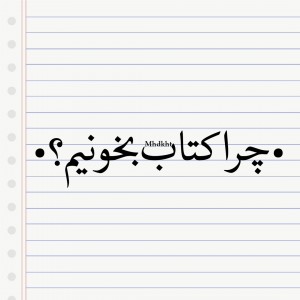 •چرا کتاب بخونیم؟•
Mhdkht